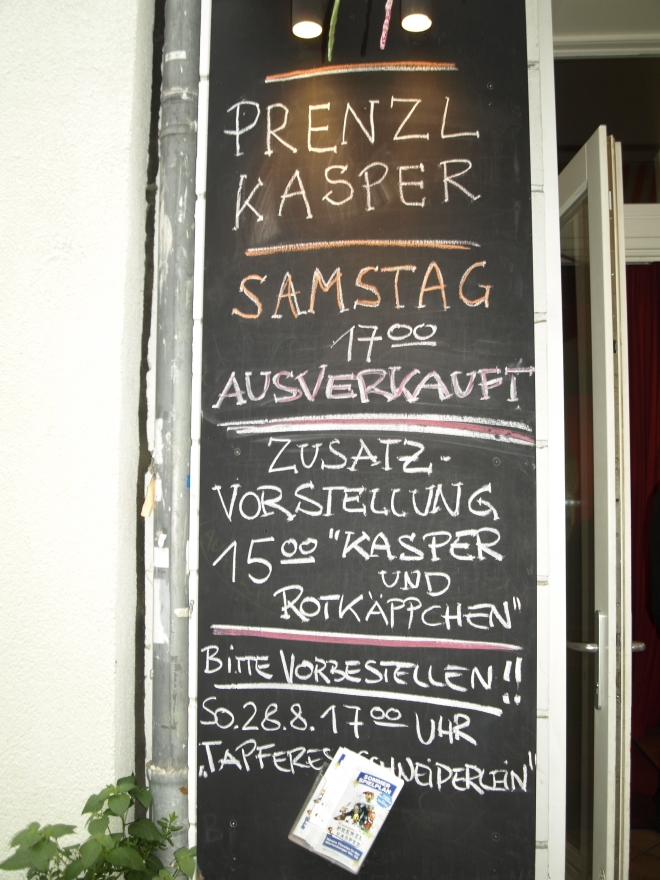 PRENZL
KASPER
SAMSTAG
17 00
AUSVERKAUFT
ZUSATZ-
VORSTELLUNG
15 00 "KASPER
UND
ROTKÄPPCHEN"
BITTE VORBESTELLEN!!
SO. 28.8. 17 00 UHR
„TAPFERES SCHNEIDERLEIN"
SOMMER
SPIELPLAN
PRENZL
KASPER